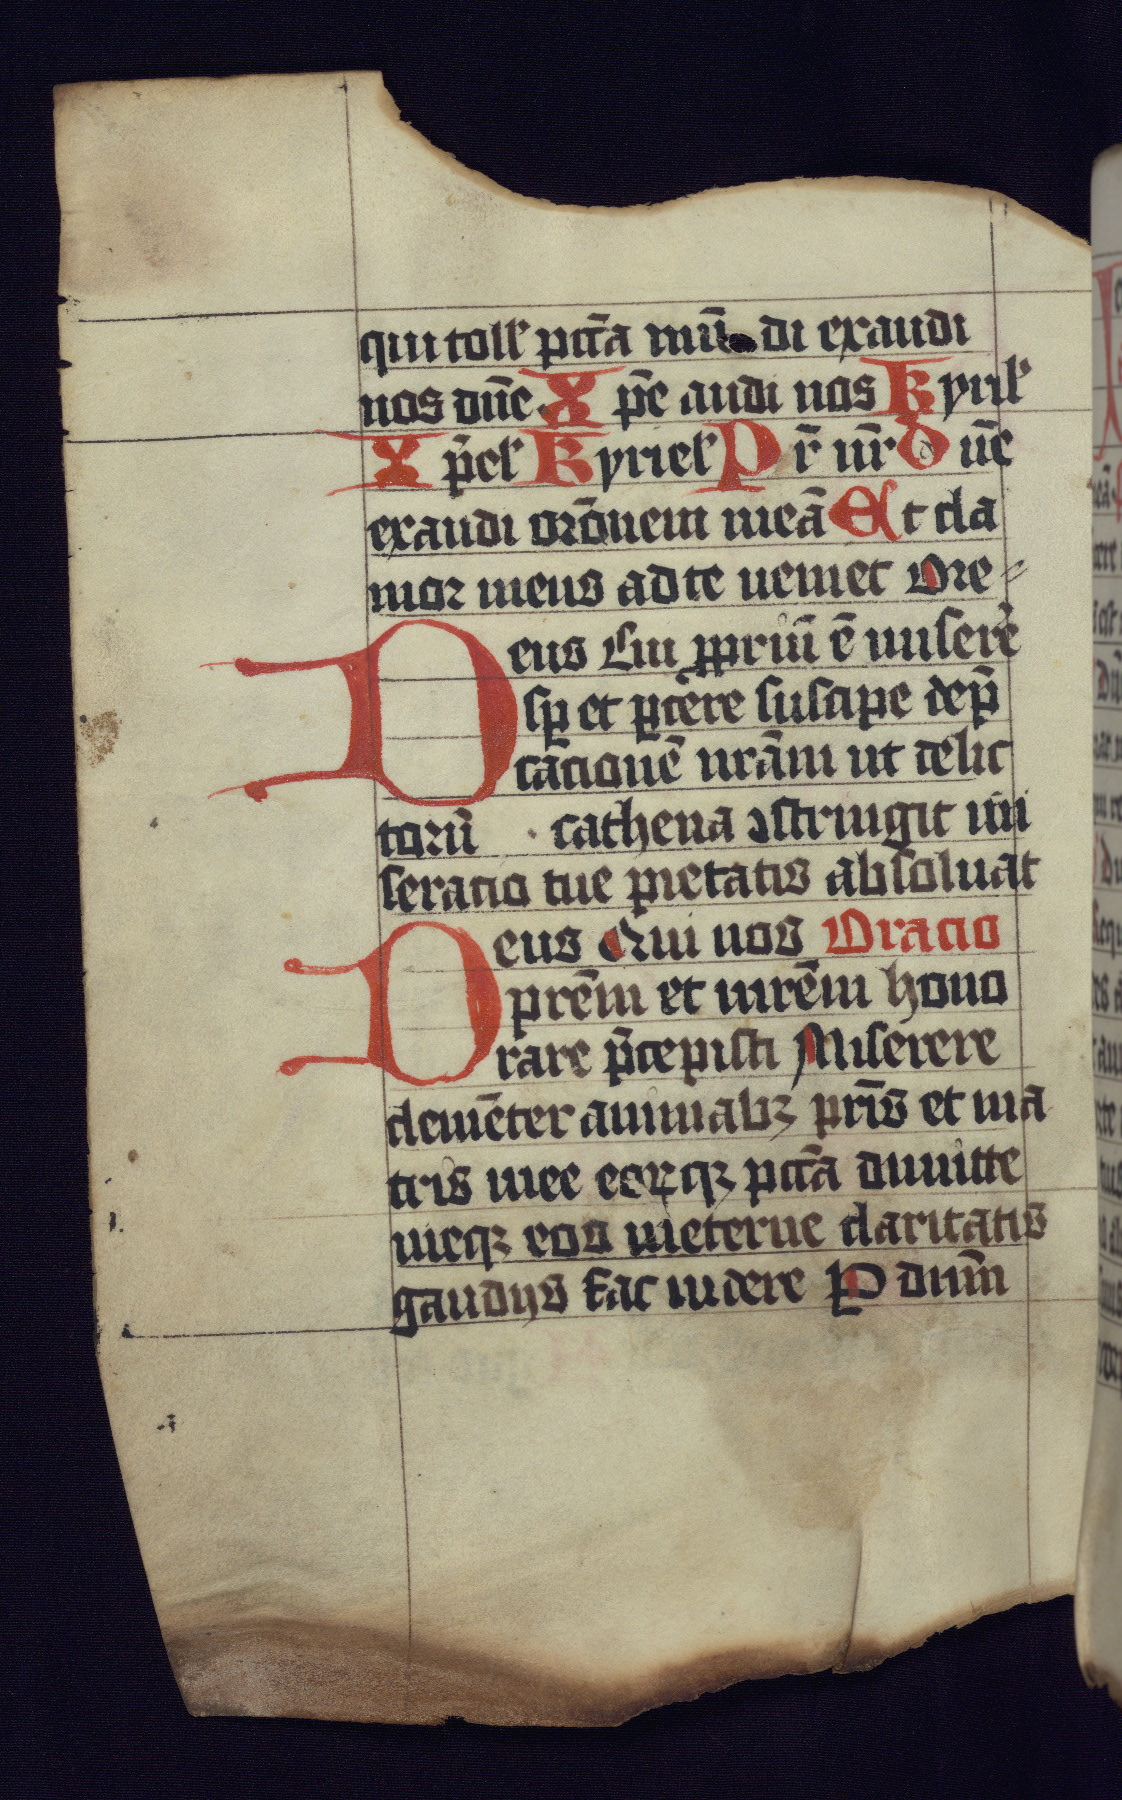 qui toll' pctā mū di exaudi
nos dn̄e Xpē audi nos kyriel'
Xp̄el' kyriel' Pr̄ nr̄ Dn̄e
exaudi orōnem meā Et cla
mor meus ad te veniet Ore
Deus Cui ꝓpriū ē miserer̄e
sp̱ et p̱cēre suscipe dep̄
cācionē nrām ut delic
torū cathena ꝯstringit mi
seracio tue pietatis absoluat
Deus Qui nos Oracio
prēm et mrēm hono
rare p̄cepisti Miserere
clemēter animabꝫ prīs et ma
tris mee eoꝝqꝫ pctā dimitte
meqꝫ eos in eterne claritatis
gaudijs fac videre P̱ dnm̄